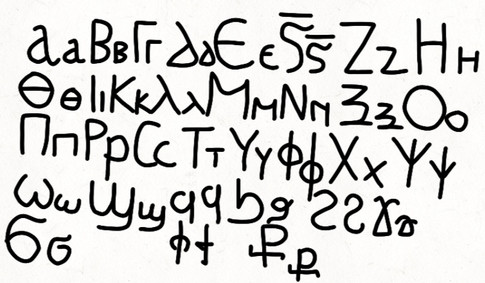 ⲀⲁⲂⲃⲄⲅⲆⲇⲈⲉⲊ̅ⲋ̅ⲌⲍⲎⲏ
ⲐⲑⲒⲓⲔⲕⲖⲗⲘⲙⲚⲛⲜⲝⲞⲟ
ⲠⲡⲢⲣⲤⲥⲦⲧⲨⲩⲪⲫⲬⲭⲮⲯ
ⲰⲱϢϣϤϥϦϧϨϩϪϫ
Ϭϭ Ϯϯ Ⳁⳁ